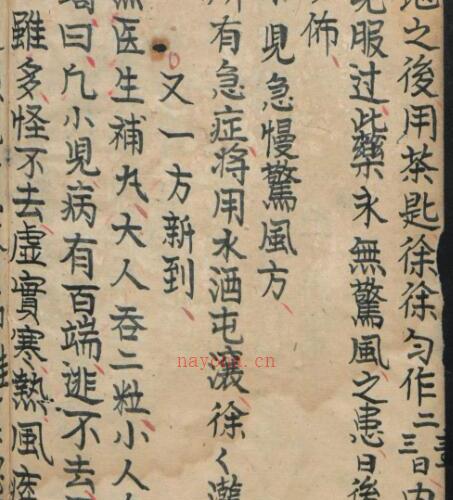 之後用茶匙徐徐勻作二三日
服过此藥永無驚風之患日後
佈
見急慢驚風方
有急症将用水酒屯瀼徐く
又一方新到
医生補丸大人吞二粒小人
曰凢小児病有百端逃不去
雖多怪不去虛實寒熱風痰
nayona.cn